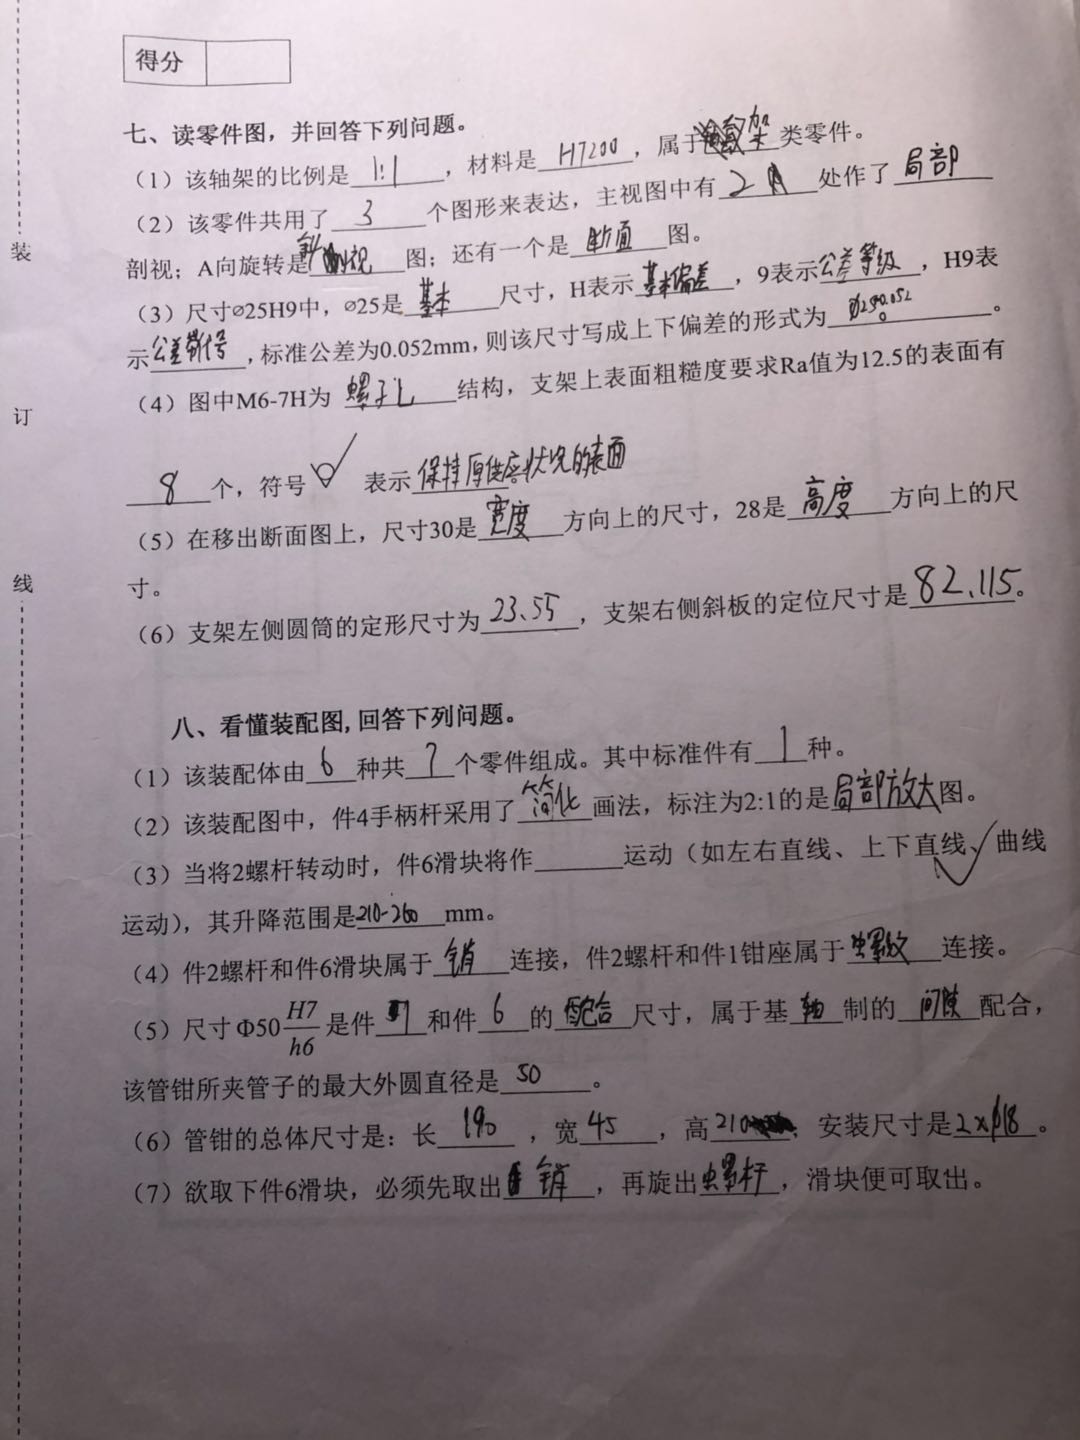 得分
七、读零件图，并回答下列问题。
（1）该轴架的比例是 1:1 ，材料是 HT200 ，属于 架 类零件。
（2）该零件共用了 3 个图形来表达，主视图中有 2 处作了 局部
剖视；A向旋转是 斜视 图；还有一个是 断面 图。
（3）尺寸⌀25H9中，⌀25是 基本 尺寸，H表示 基本偏差 ，9表示 公差等级 ，H9表
示 公差带代号 ，标准公差为0.052mm，则该尺寸写成上下偏差的形式为 ϕ25 0.052 0 。
（4）图中M6-7H为 螺孔 结构，支架上表面粗糙度要求Ra值为12.5的表面有
8 个，符号 表示 保持原供应状况的表面
（5）在移出断面图上，尺寸30是 宽度 方向上的尺寸，28是 高度 方向上的尺
寸。
（6）支架左侧圆筒的定形尺寸为 23、55 ，支架右侧斜板的定位尺寸是 82、115 。
八、看懂装配图,回答下列问题。
（1）该装配体由 6 种共 7 个零件组成。其中标准件有 1 种。
（2）该装配图中，件4手柄杆采用了 简化 画法，标注为2:1的是 局部放大 图。
（3）当将2螺杆转动时，件6滑块将作 运动（如左右直线、上下直线、曲线
运动），其升降范围是 210-260 mm。
（4）件2螺杆和件6滑块属于 销 连接，件2螺杆和件1钳座属于 螺纹 连接。
（5）尺寸Φ50 H7/h6 是件 1 和件 6 的 配合 尺寸，属于基 轴 制的 间隙 配合，
该管钳所夹管子的最大外圆直径是 50 。
（6）管钳的总体尺寸是：长 190 ，宽 45 ，高 210 ，安装尺寸是 2×ϕ18 。
（7）欲取下件6滑块，必须先取出 销 ，再旋出 螺杆 ，滑块便可取出。
装
订
线